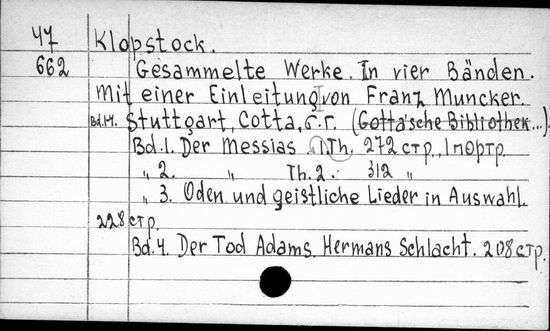 47 Klopstock.
662 Gesammelte Werke. In vier Bänden.
Mit einer Einleitung von Franz Muncker.
Bd.1-4. Stuttgart, Cotta, б.г. (Cotta'sche Bibliothek...)
Bd.1. Der Messias. 1 Th. 272 стр., 1 портр.
„ 2. „ Th.2. 312 „
„ 3. Oden und geistliche Lieder in Auswahl.
228 стр.
Bd.4. Der Tod Adams. Hermans Schlacht. 208 стр.